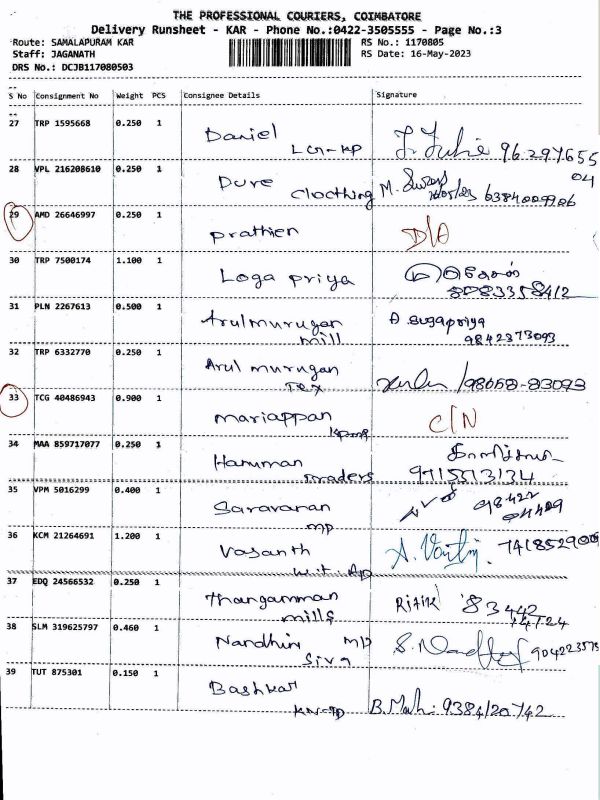 THE PROFESSIONAL COURIERS, COIMBATORE
Delivery Runsheet - KAR - Phone No.:0422-3505555 - Page No.:3
Route: SAMALAPURAM KAR RS No.: 1170805
Staff: JAGANATH RS Date: 16-May-2023
DRS No.: DCJB117080503
S No Consignment No Weight PCS Consignee Details Signature
27 TRP 1595668 0.250 1
Daniel
96297655
04
28 VPL 216208610 0.250 1
Dure
Clothing M.
6384009906
29 AMD 26646997 0.250 1
prathien D/A
30 TRP 7500174 1.100 1
Loga priya
8083358412
31 PLN 2267613 0.500 1
Arulmurugan A. Sugapriya
mill 9842373093
32 TRP 6332770 0.250 1
Arul murugan
Tex /98658-83093
33 TCG 40486943 0.900 1
mariappan C/N
34 MAA 859717077 0.250 1
Hanuman
traders 9715513134
35 VPM 5016299 0.400 1
Saravanan 98422
mp 04409
36 KCM 21264691 1.200 1
Vasanth 7418529009
37 EDQ 24566532 0.250 1
Thangamman 83442
mills 14724
38 SLM 319625797 0.460 1
Nandhini mp
Siva 904223575
39 TUT 875301 0.150 1
Bashkar
9384120742